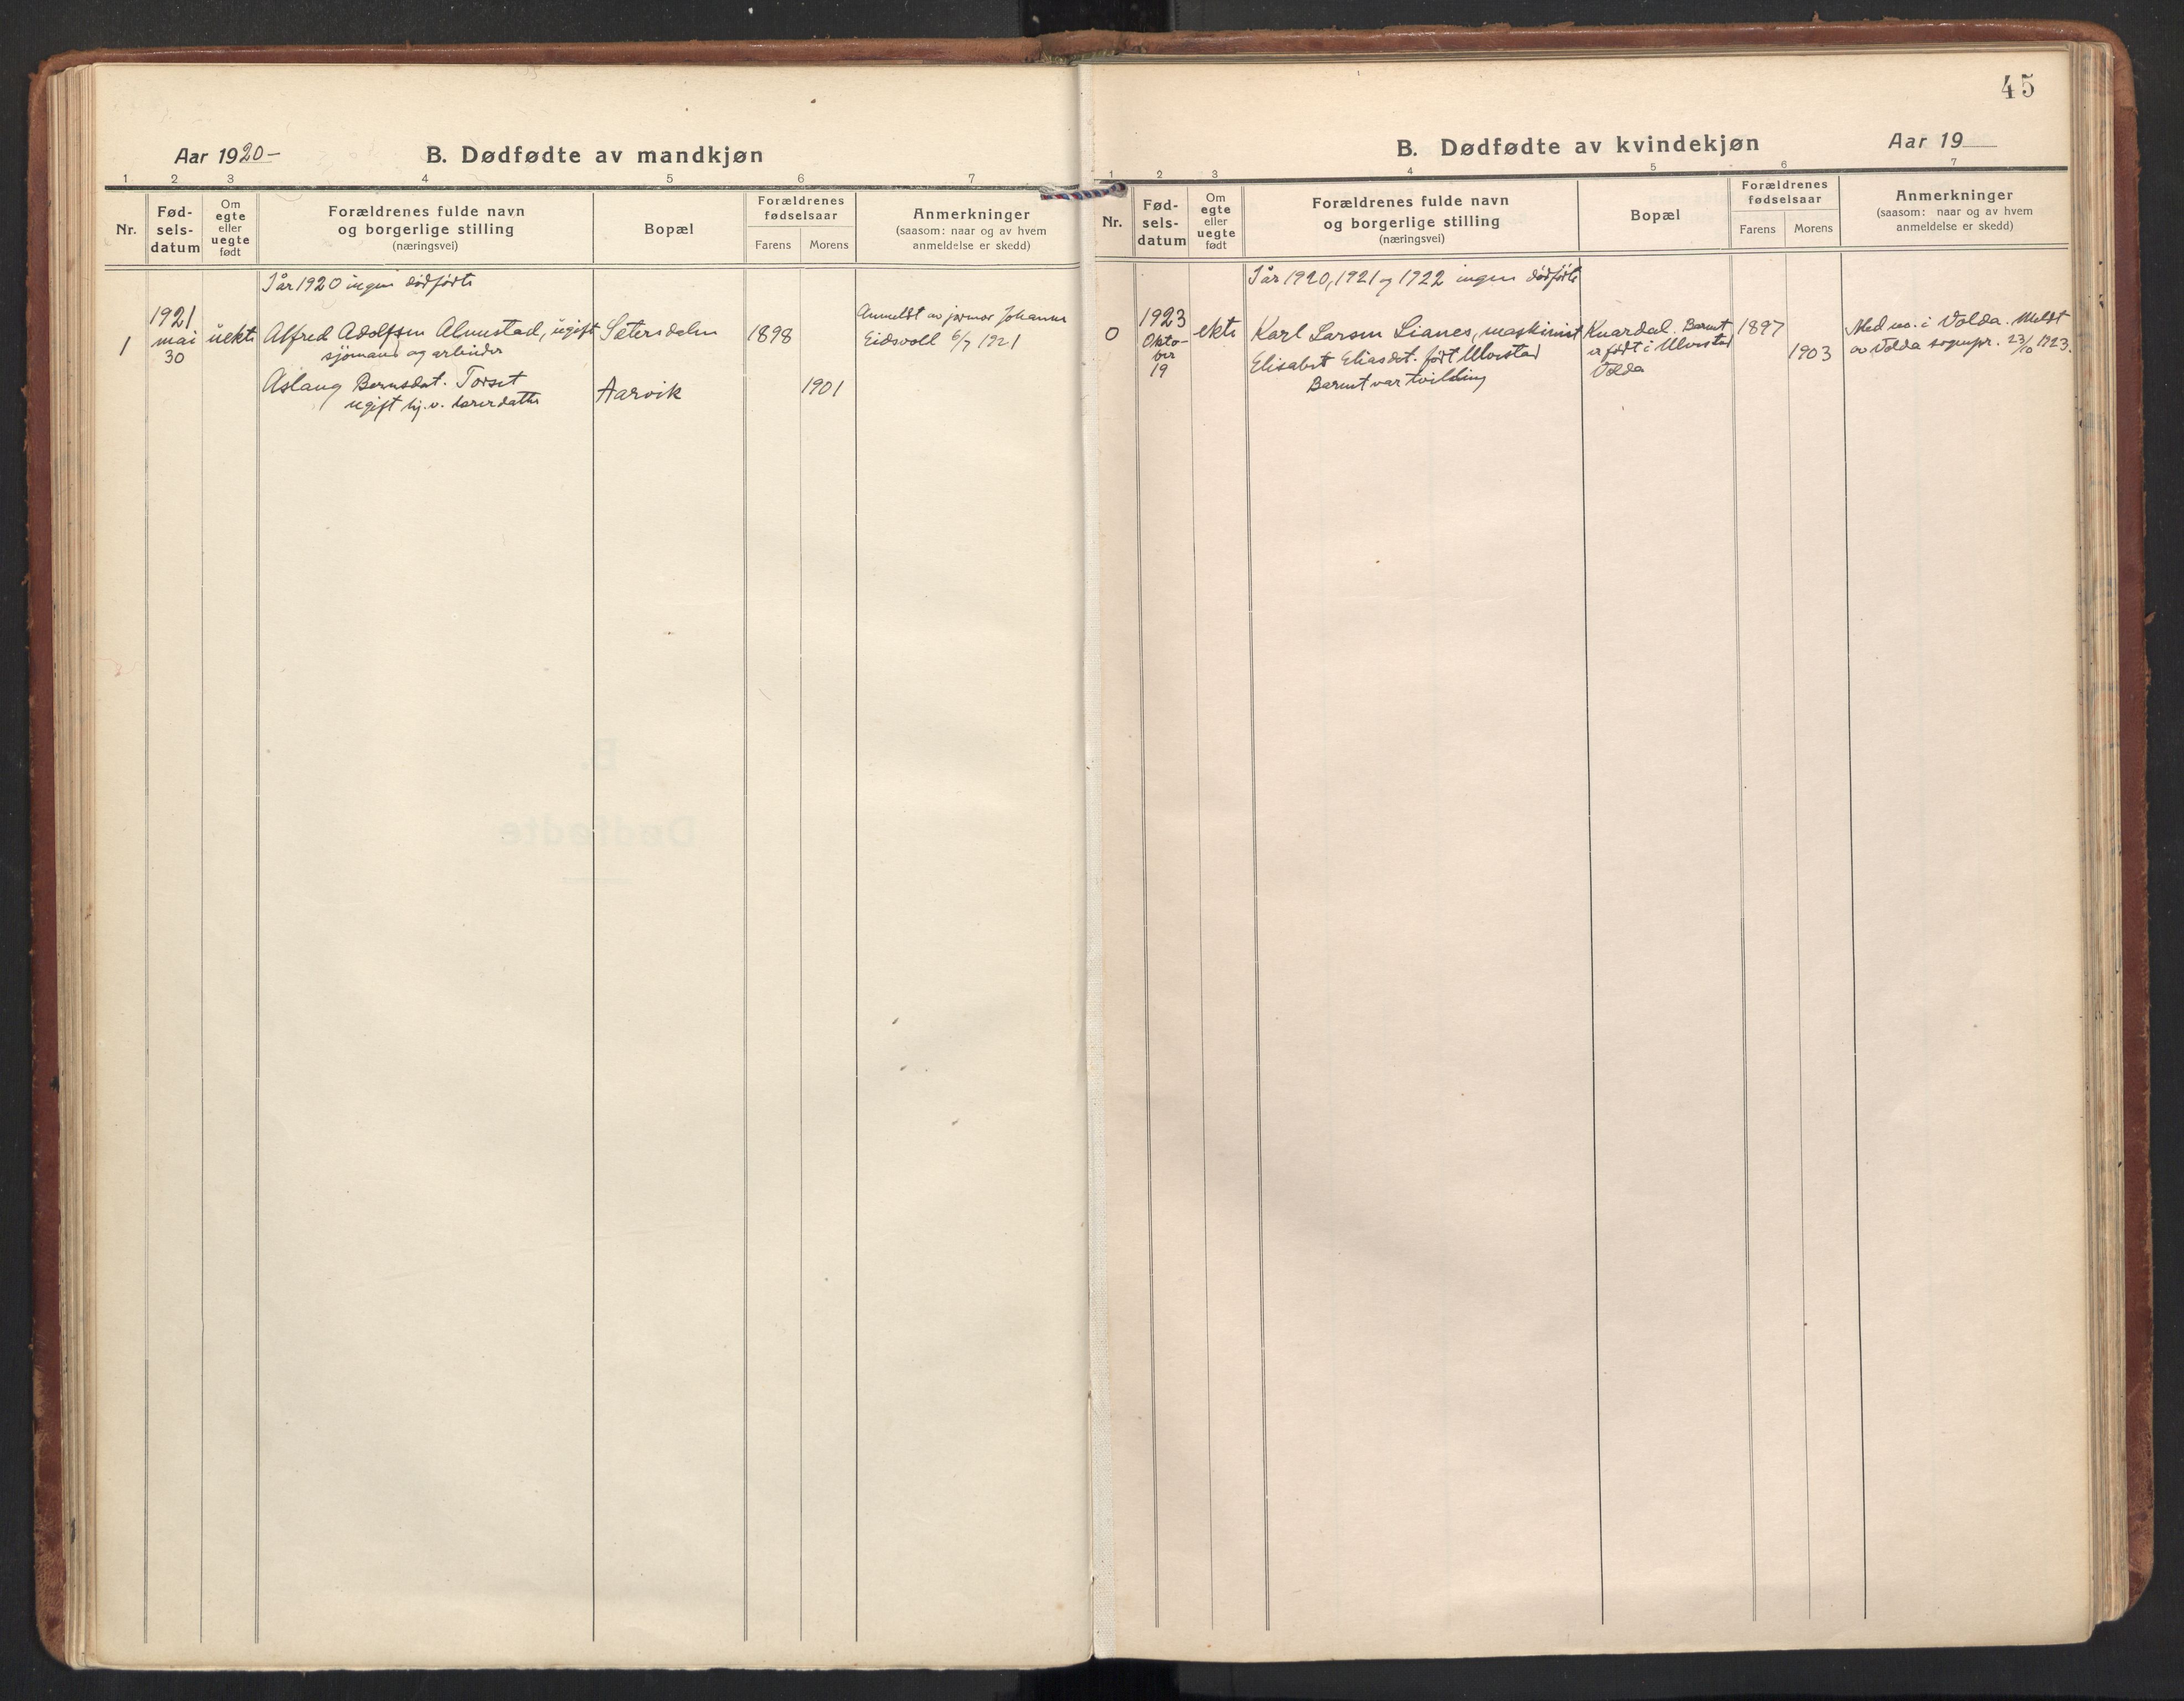 Aar 1920-
B. Dødfødte av mandkjøn
1 2 3 4 5 6 7
Nr.
Fød-
sels-
datum
Om
egte
eller
uegte
født
Forældrenes fulde navn
og borgerlige stilling
(næringsvei)
Bopæl
Forældrenes
fødselsaar
Farens Morens
Anmerkninger
(saasom: naar og av hvem
anmeldelse er skedd)
I år 1920 ingen dødfödte
1921
1 mai uekte Alfred Adolfsen Almestad, ugift Sætersdalen 1898
30 sjömand og arbeider
Anmeldt av jormor Johanne
Eidsvoll 6/7 1921
Aslaug Berntsdat. Torset Aarvik 1901
ugift hj.v.
45
B. Dødfødte av kvindekjøn
Aar 19
1 2 3 4 5 6 7
Nr.
Fød-
sels-
datum
Om
egte
eller
uegte
født
Forældrenes fulde navn
og borgerlige stilling
(næringsvei)
Bopæl
Forældrenes
fødselsaar
Farens Morens
Anmerkninger
(saasom: naar og av hvem
anmeldelse er skedd)
I år 1920, 1921 og 1922 ingen dödfödte
1923
0 Okto-
ber
19
ekte
Karl Larsen Lianes, maskinist
Elisabet Eliasdt. født Ulvestad
Barnet var tvilling
Kvardal. Barnet
er født i Ulvestad
Volda
1897
1903
Med no. i Volda. Meldt
av Volda sognepr. 23/10 1923.